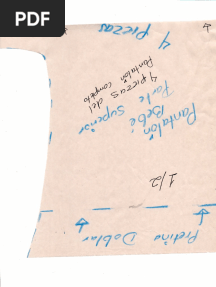 PDF
4 Piezas
4 piezas del
Pantalón completo
Pantalón
Bebé
Parte Superior
1/2
Pretina Doblar